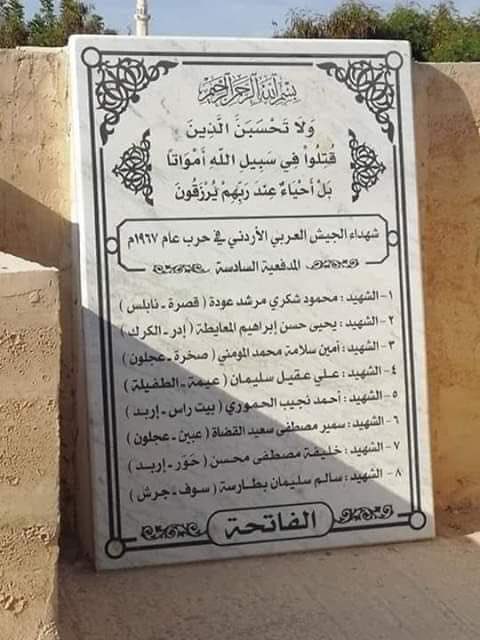 بسم الله الرحمن الرحيم
وَلَا تَحْسَبَنَّ الَّذِينَ
قُتِلُواْ فِي سَبِيلِ اللَّهِ أَمْوَاتًا
بَلْ أَحْيَاءٌ عِندَ رَبِّهِمْ يُرْزَقُونَ
شهداء الجيش العربي الأردني في حرب عام ١٩٦٧م
المدفعية السادسة
١- الشهيد : محمود شكري مرشد عودة ( قصرة - نابلس )
٢- الشهيد : يحيى حسن إبراهيم المعايطة ( إدر - الكرك )
٣- الشهيد : أمين سلامة محمد المومني ( صخرة - عجلون )
٤- الشهيد : علي عقيل سليمان ( عيمة - الطفيلة )
٥- الشهيد : أحمد نجيب الحموري ( بيت راس - إربد )
٦- الشهيد : سمير مصطفى سعيد القضاة ( عبين - عجلون )
٧- الشهيد : خليفة مصطفى محسن ( حَوَر - إربد )
٨- الشهيد : سالم سليمان بطارسة ( سوف - جرش )
الفاتحة